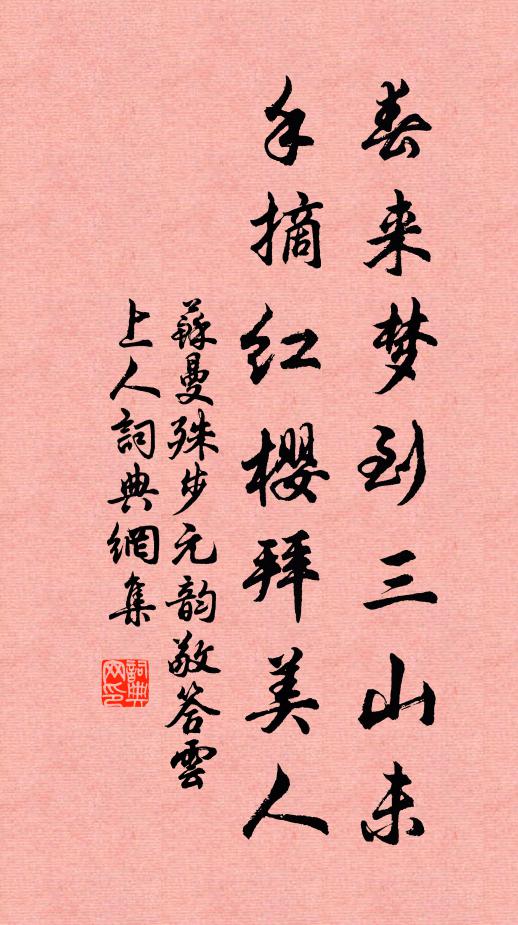 春来梦到三山未
手摘红樱拜美人
蘇曼殊步元韵敬答雲
上人詞典網集
詞典网印